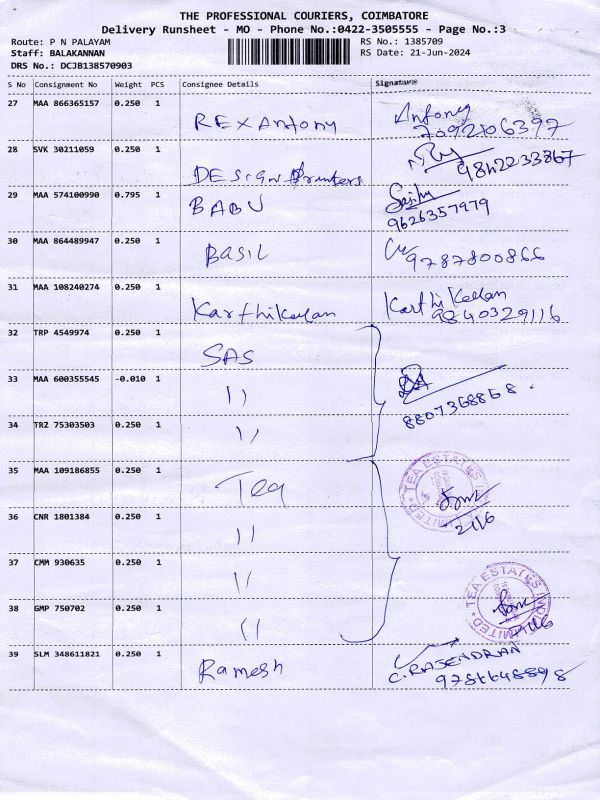 THE PROFESSIONAL COURIERS, COIMBATORE
Delivery Runsheet - MO - Phone No.:0422-3505555 - Page No.:3
Route: P N PALAYAM RS No.: 1385709
Staff: BALAKANNAN RS Date: 21-Jun-2024
DRS No.: DCJB138570903
S No Consignment No Weight PCS Consignee Details Signature
27 MAA 866365157 0.250 1 REX Antony Antony
7092106397
28 SVK 30211059 0.250 1 DESIGN Printers
9842233867
29 MAA 574100990 0.795 1 BABU
9626357979
30 MAA 864489947 0.250 1 BASIL 9787800866
31 MAA 108240274 0.250 1 Karthikeyan Karthikeyan
9840329116
32 TRP 4549974 0.250 1 SAS
33 MAA 600355545 -0.010 1 11
8807368868
34 TRZ 75303503 0.250 1 11
35 MAA 109186855 0.250 1 Tea TEA ESTATES LIMITED
21/6
36 CNR 1801384 0.250 1 11
37 CMM 930635 0.250 1 11
38 GMP 750702 0.250 1 11 TEA ESTATES INDIA LIMITED
39 SLM 348611821 0.250 1 Ramesh C. RAJENDRAN
9786648898